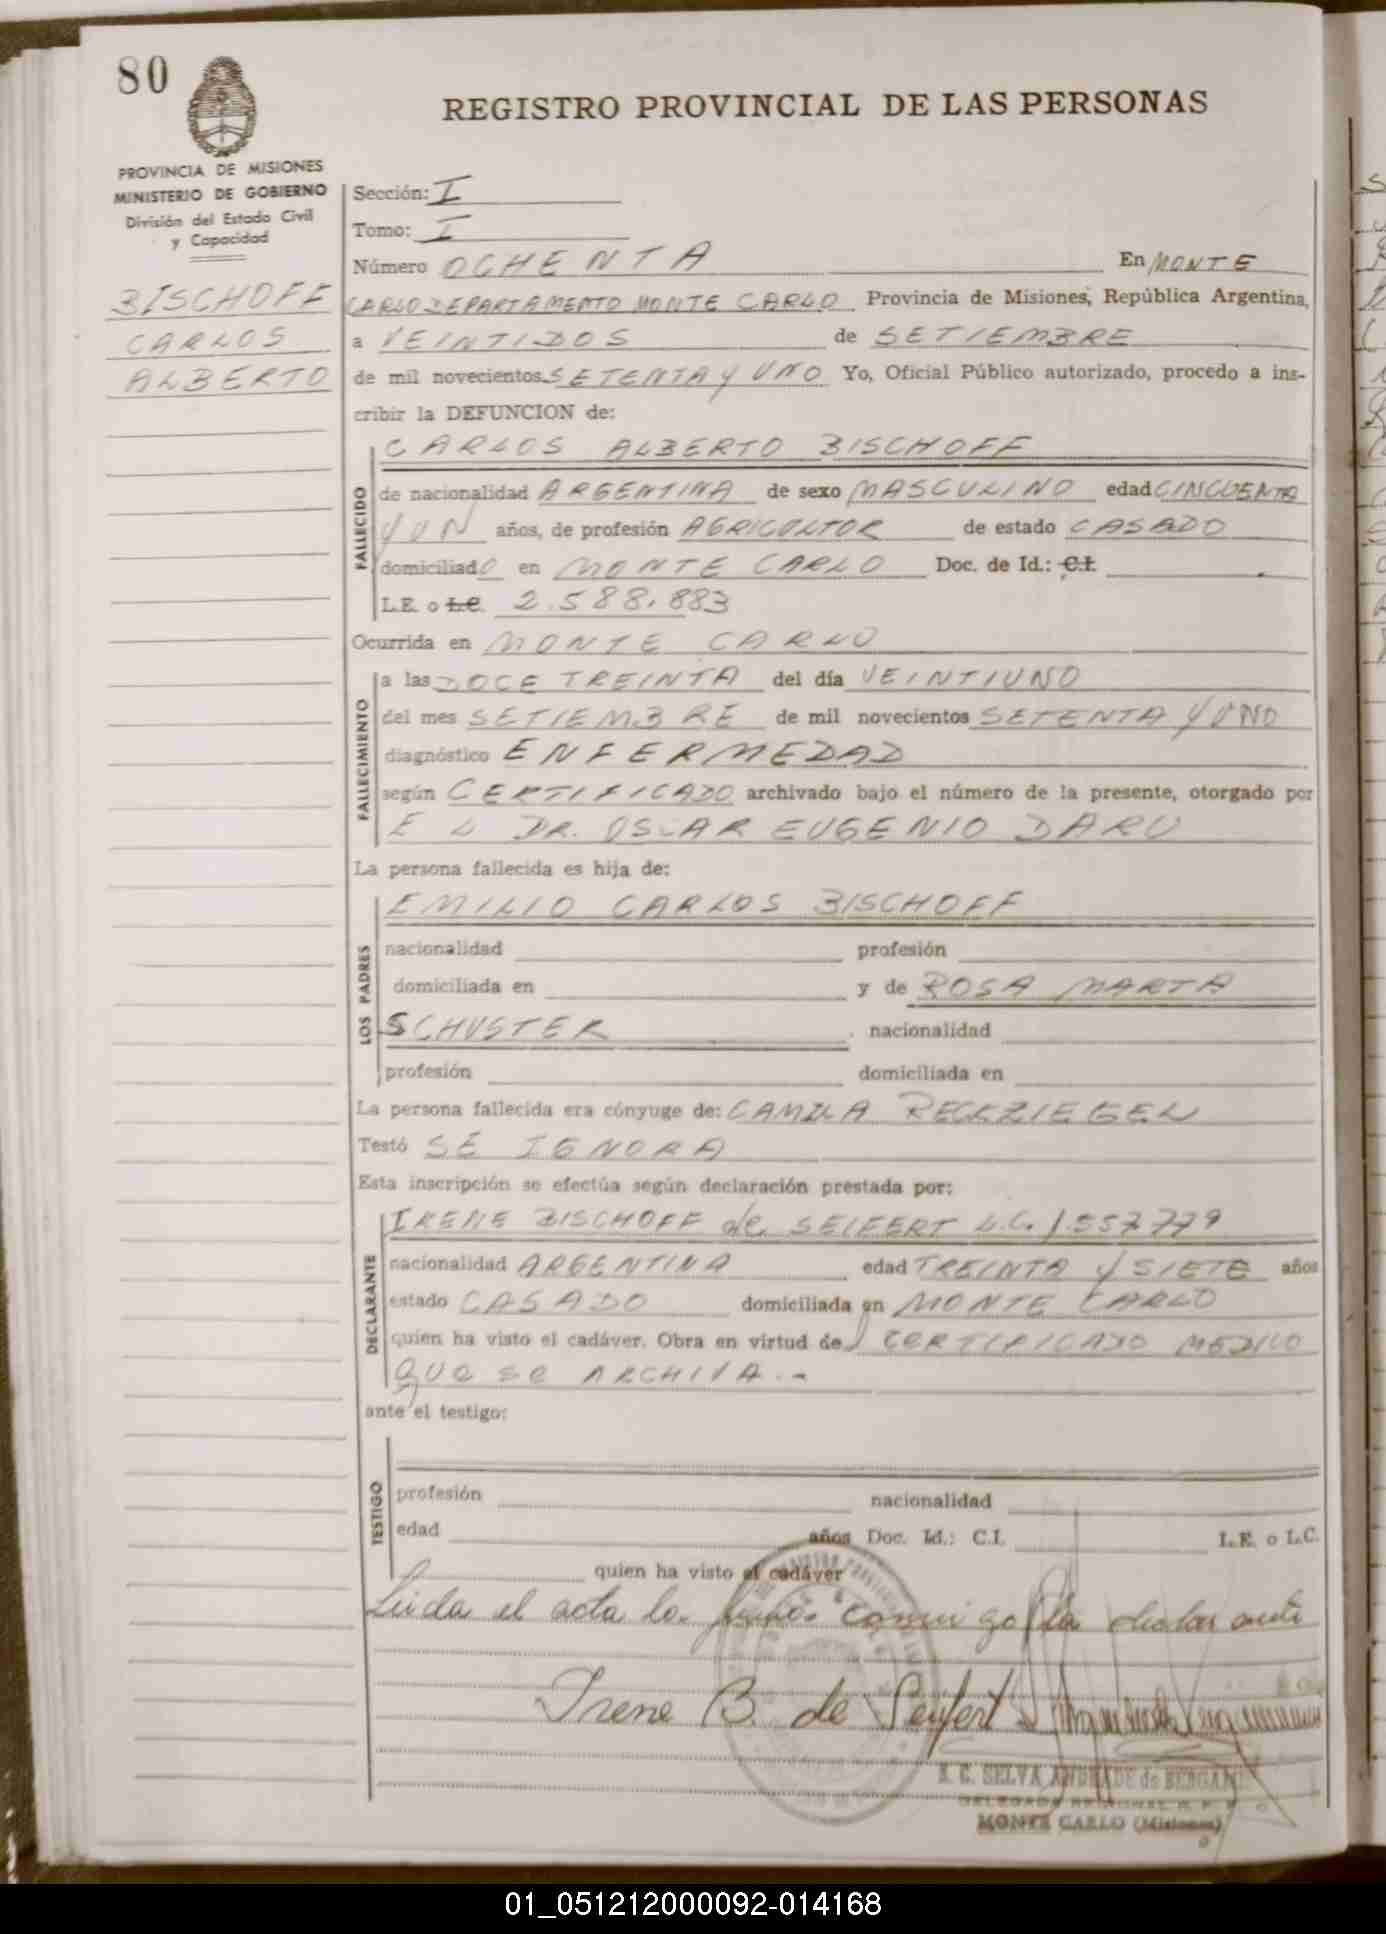 80
REGISTRO PROVINCIAL DE LAS PERSONAS
PROVINCIA DE MISIONES
MINISTERIO DE GOBIERNO
División del Estado Civil
y Capacidad
BISCHOFF
CARLOS
ALBERTO
Sección: I
Tomo: I
Número OCHENTA En MONTE
CARLO DEPARTAMENTO MONTE CARLO Provincia de Misiones, República Argentina,
a VEINTIDOS de SETIEMBRE
de mil novecientos SETENTA Y UNO Yo, Oficial Público autorizado, procedo a ins-
cribir la DEFUNCION de:
FALLECIDO
CARLOS ALBERTO BISCHOFF
de nacionalidad ARGENTINA de sexo MASCULINO edad CINCUENTA
Y UN años, de profesión AGRICULTOR de estado CASADO
domiciliado en MONTE CARLO Doc. de Id.: C.I.
L.E. o L.C. 2.588.883
Ocurrida en MONTE CARLO
FALLECIMIENTO
a las DOCE TREINTA del día VEINTIUNO
del mes SETIEMBRE de mil novecientos SETENTA Y UNO
diagnóstico ENFERMEDAD
según CERTIFICADO archivado bajo el número de la presente, otorgado por
EL DR. OSCAR EUGENIO DARU
La persona fallecida es hija de:
LOS PADRES
EMILIO CARLOS BISCHOFF
nacionalidad profesión
domiciliada en y de ROSA MARTA
SCHUSTER nacionalidad
profesión domiciliada en
La persona fallecida era cónyuge de: CAMILA RECKZIEGEL
Testó SE IGNORA
Esta inscripción se efectúa según declaración prestada por:
DECLARANTE
IRENE BISCHOFF de SEIFERT L.C. 1.557.779
nacionalidad ARGENTINA edad TREINTA Y SIETE años
estado CASADO domiciliada en MONTE CARLO
quien ha visto el cadáver. Obra en virtud de CERTIFICADO MEDICO
QUE SE ARCHIVA.-
ante el testigo:
TESTIGO
profesión nacionalidad
edad años Doc. Id.: C.I. L.E. o L.C.
quien ha visto el cadáver
Leida el acta la conmigo la
Irene B. de Seifert
SELVA ANDRADE de
MONTE CARLO (Misiones)
01_051212000092-014168